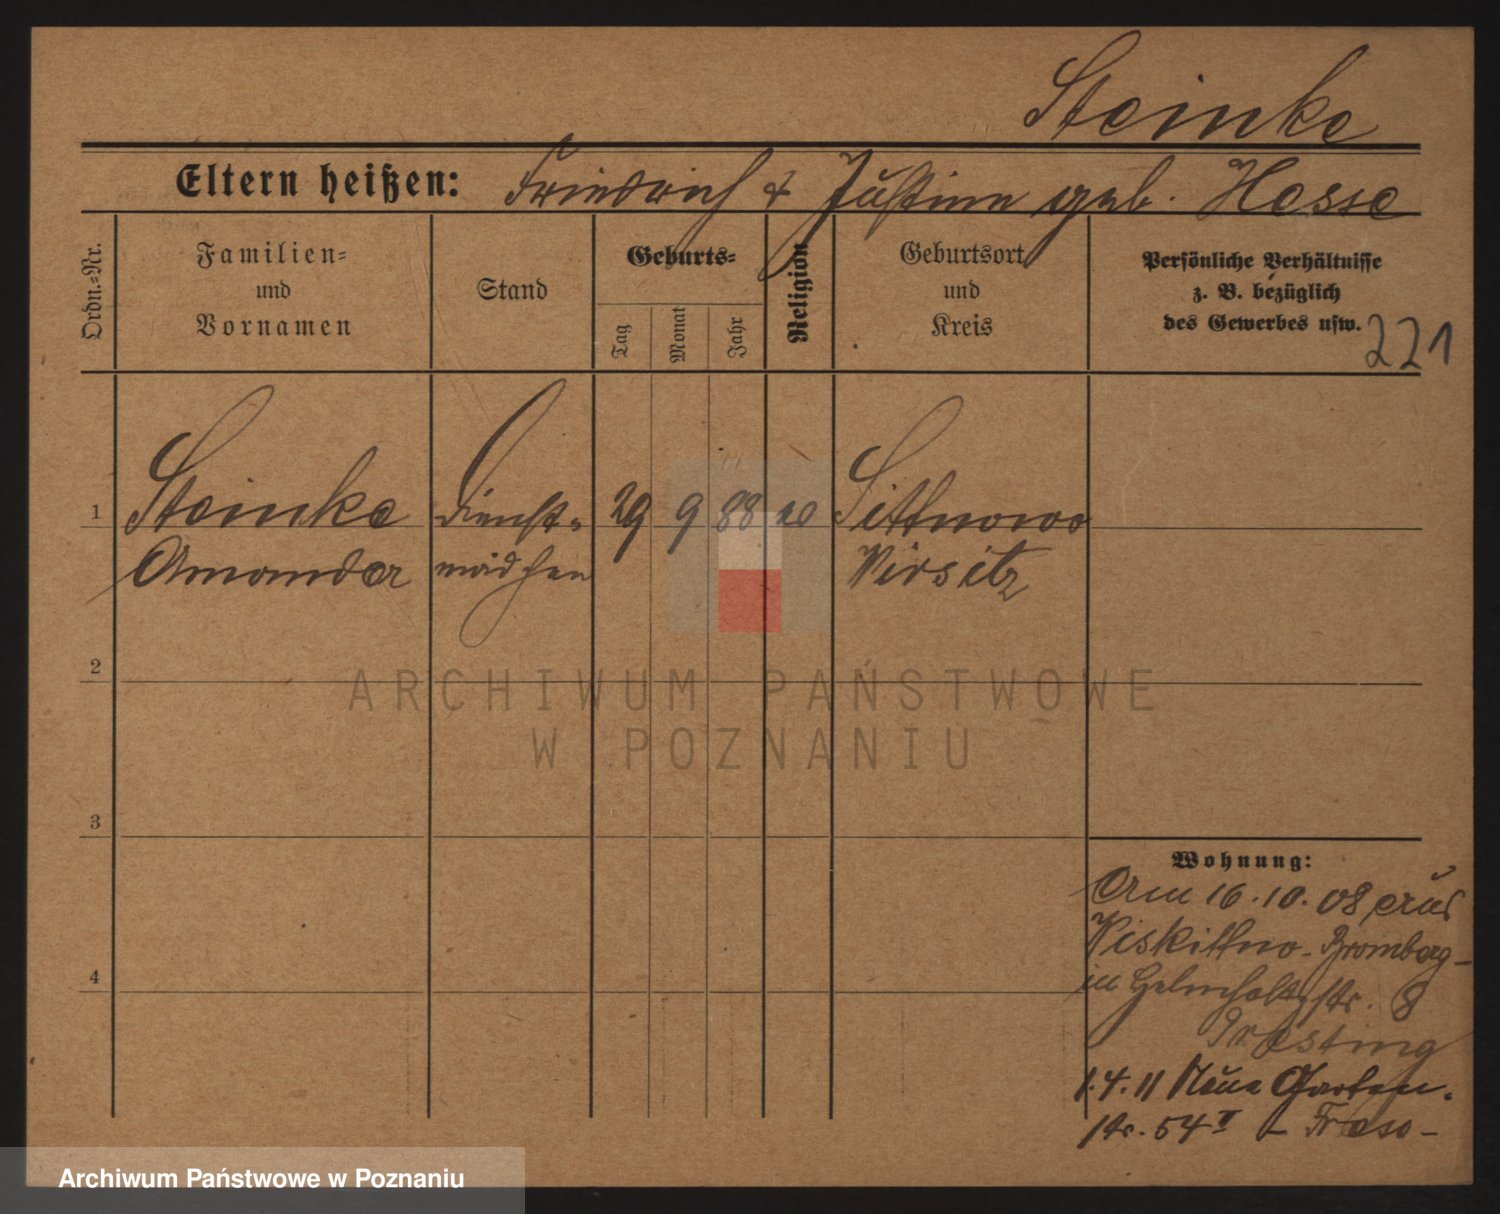 Steinke
Eltern heißen: Friedrich & Justine geb. Hesse
Ordn.=Nr.
Familien=
und
Vornamen
Stand
Geburts=
Tag
Monat
Jahr
Religion
Geburtsort
und
Kreis
Persönliche Verhältnisse
z. B. bezüglich
des Gewerbes usw.
221
1
Steinke
Amanda
Dienst=
mädchen
29
9
88
Sittnowo
Wirsitz
2
3
4
Wohnung:
Am 16.10.08 aus
Wiskittno - Bromberg -
in Helmholtzstr. 8
1.4.11 Neue Garten-
str. 54 II -
ARCHIWUM PAŃSTWOWE
W POZNANIU
Archiwum Państwowe w Poznaniu